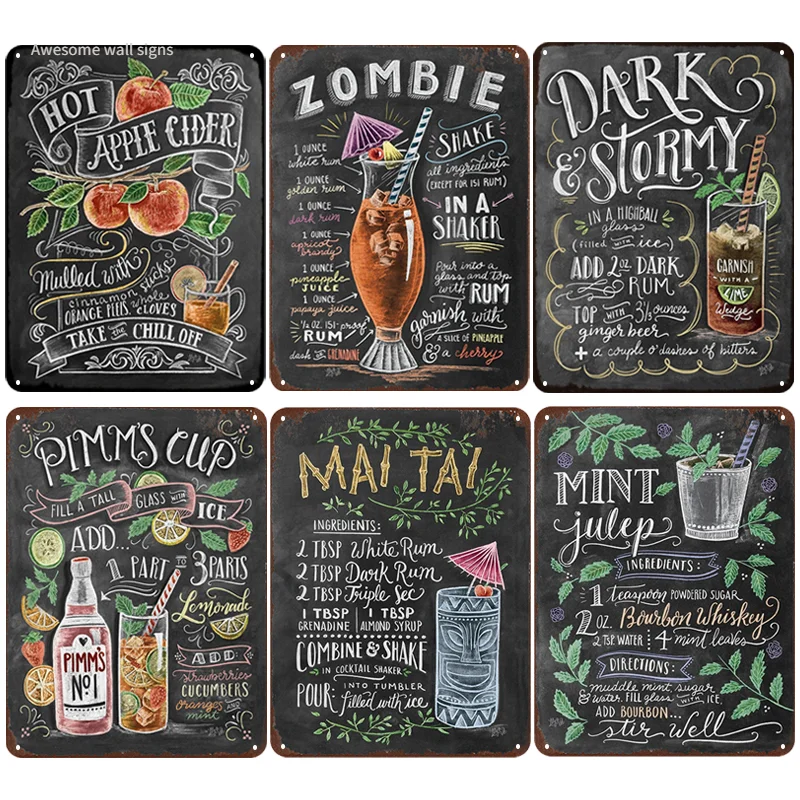 Awesome wall signs
HOT
APPLE CIDER
Mulled with
cinnamon sticks
ORANGE PEELS whole
CLOVES
TAKE the CHILL OFF
ZOMBIE
1 OUNCE
white rum
1 OUNCE
golden rum
1 OUNCE
dark rum
1 OUNCE
apricot
brandy
1 OUNCE
pineapple
JUICE
1 OUNCE
papaya juice
½ oz. 151-proof
RUM
dash OF GRENADINE
SHAKE
all ingredients
(EXCEPT FOR 151 RUM)
IN A
SHAKER
Pour into a
glass and top
with RUM
garnish with
A SLICE OF PINEAPPLE
& a cherry
DARK
& STORMY
IN A HIGHBALL
glass
(filled WITH ice)
ADD 2 oz. DARK
RUM
TOP WITH 3½ ounces
ginger beer
+ a couple o' dashes of bitters
GARNISH
WITH A
LIME
Wedge
PIMM'S CUP
FILL A TALL GLASS WITH ICE
ADD...
1 PART TO 3 PARTS
Lemonade
PIMM'S
No1
ADD
strawberries
CUCUMBERS
oranges AND
mint
MAI TAI
INGREDIENTS:
2 TBSP White Rum
2 TBSP Dark Rum
2 TBSP Triple Sec
1 TBSP GRENADINE
1 TBSP ALMOND SYRUP
COMBINE & SHAKE
IN COCKTAIL SHAKER
POUR: INTO TUMBLER
filled with ice
MINT
julep
INGREDIENTS:
1 teaspoon POWDERED SUGAR
2 oz. Bourbon Whiskey
2 TSP WATER 4 mint leaves
DIRECTIONS:
muddle mint, sugar
& water. FILL glass WITH ICE.
ADD BOURBON...
stir well